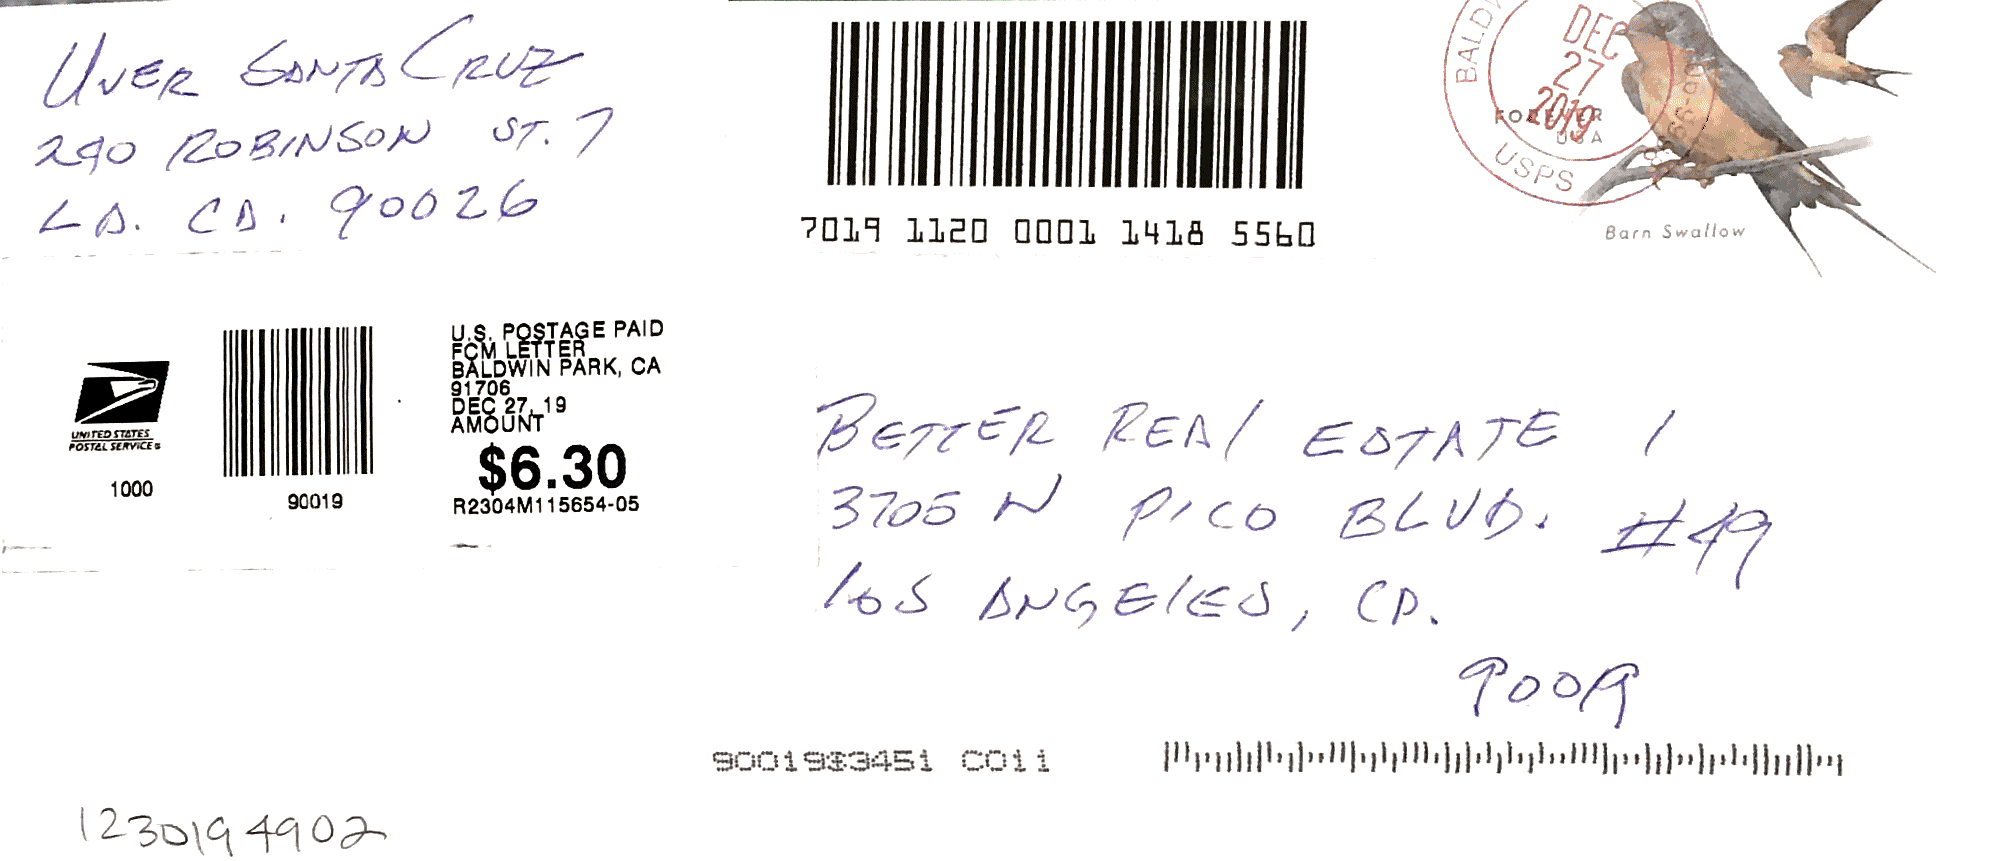 UVER SANTA CRUZ
290 ROBINSON ST. 7
LA. CA. 90026
7019 1120 0001 1418 5560
DEC
27
2019
FOREVER
USA
USPS
Barn Swallow
UNITED STATES
POSTAL SERVICE®
1000
90019
U.S. POSTAGE PAID
FCM LETTER
BALDWIN PARK, CA
91706
DEC 27, 19
AMOUNT
$6.30
R2304M115654-05
BETTER REAl ESTATE 1
3705 W PICO BLVD. #49
los ANGElES, CA.
90019
90019$3451 C011
1230194902